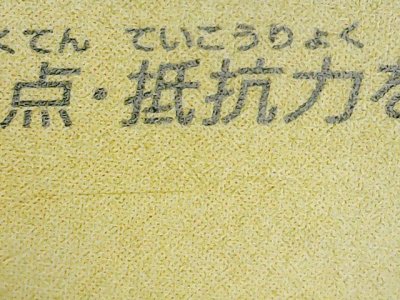 くてん ていこうりょく
点・抵抗力を